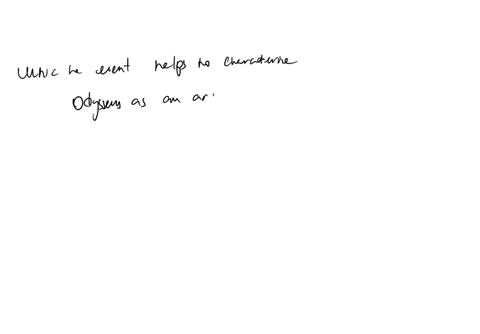 Whic he event helps to characterize
Odysseus as an ar